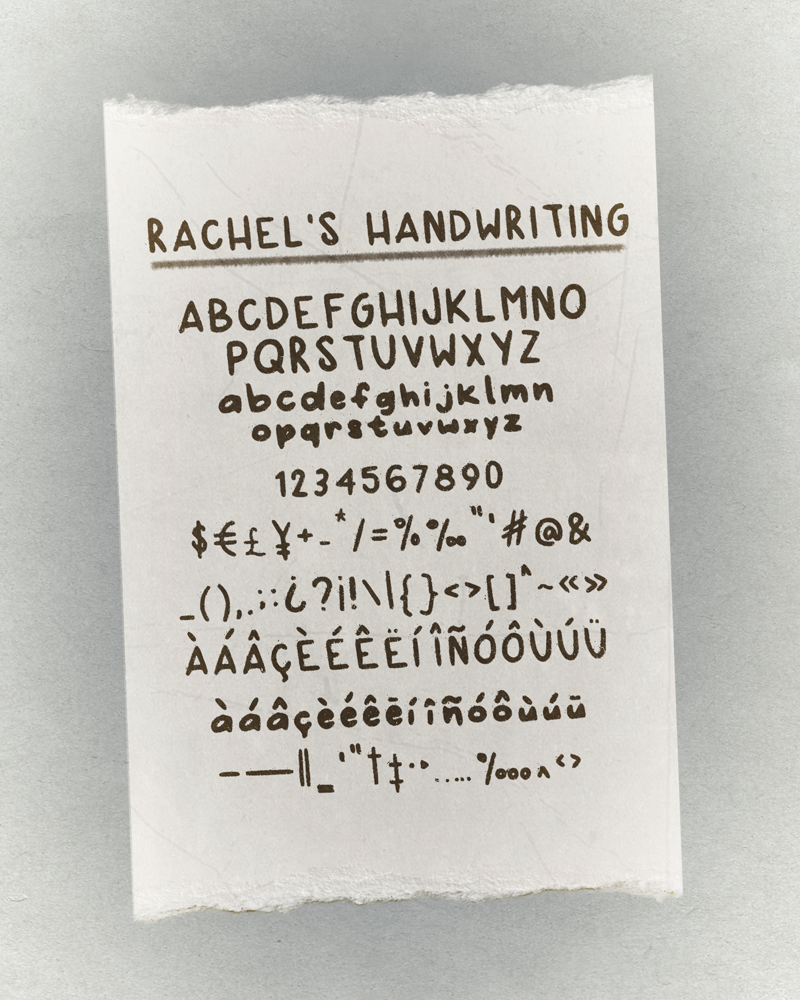 RACHEL'S HANDWRITING
ABCDEFGHIJKLMNO
PQRSTUVWXYZ
abcdefghijklmn
opqrstuvwxyz
1234567890
$€£¥+-*/=%%‰"'#@&
_(),.;:¿?¡!\|{}<>[]^~«»
ÀÁÂÇÈÉÊËÍÎÑÓÔÙÚÜ
àáâçèéêëíîñóôùúü
–—‖_'"†‡··.....‰o^‹›